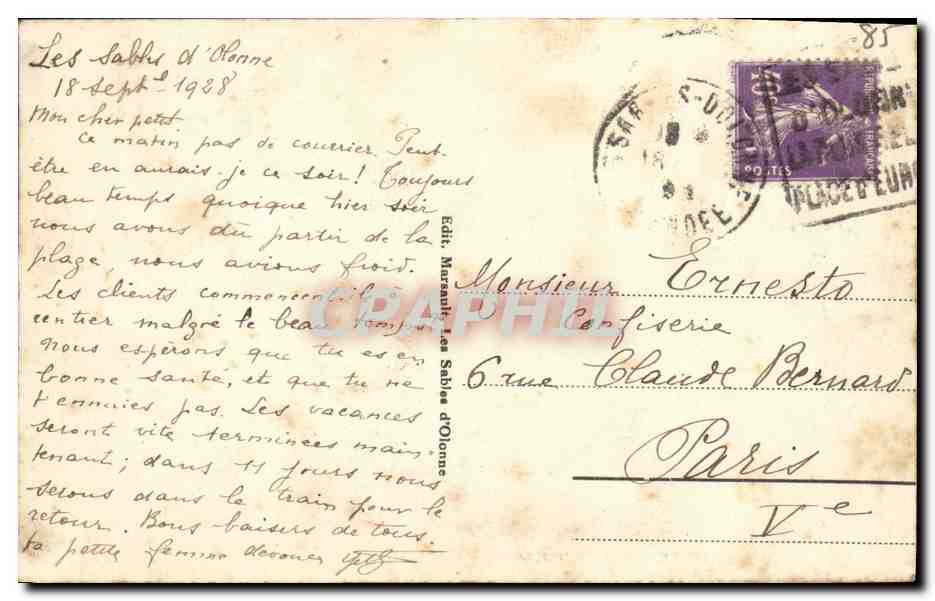 85
Les Sables d'Olonne
18 sept 1928
Mon cher petit
Ce matin pas de courrier. Peut-
être en aurais-je ce soir! Toujours
beau temps quoique hier soir
nous avons dû partir de la
plage, nous avions froid.
Les clients commencent
malgré le beau temps
nous espérons que tu es en
bonne santé, et que tu ne
t'ennuies pas. Les vacances
seront vite terminées main-
tenant; dans 11 jours nous
serons dans le train pour le
retour. Bons baisers de tous.
ta petite femme dévouée
Edit. Marsault, Les Sables d'Olonne
CPAPHIL
40c
REPUBLIQUE FRANÇAISE
POSTES
Monsieur Ernesto
Confiserie
6 rue Claude Bernard
Paris
Ve